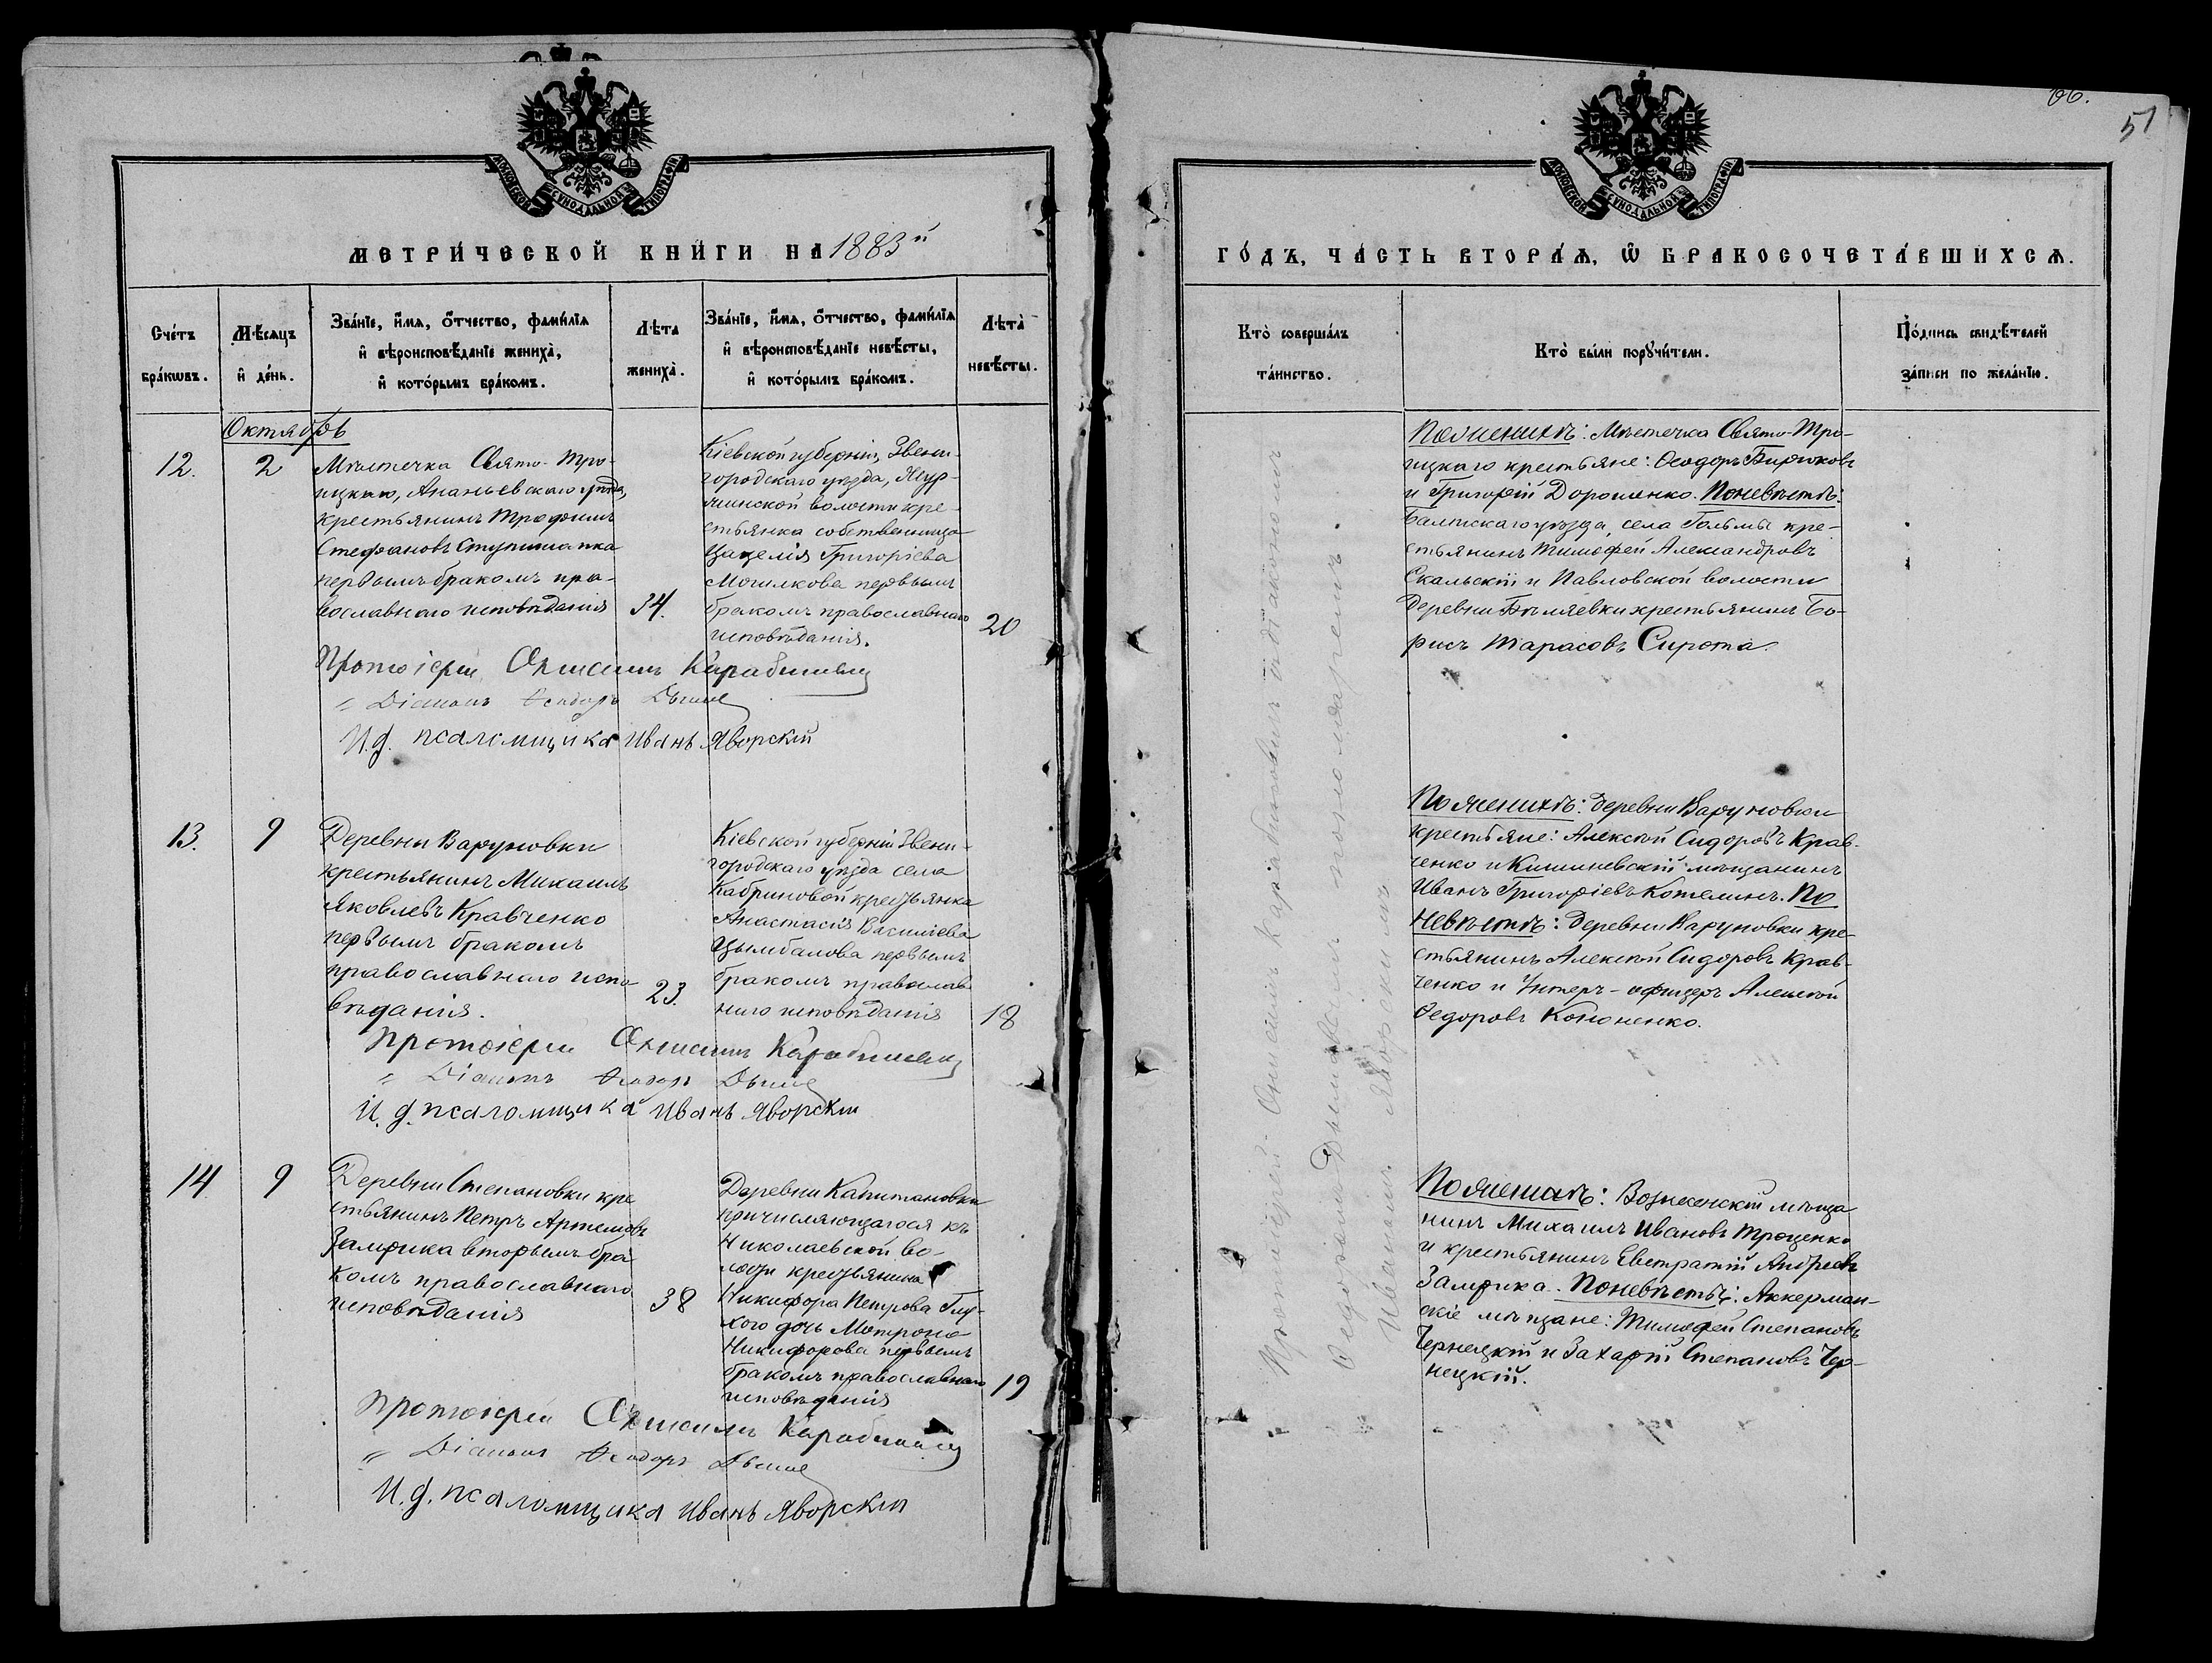 МОСКОВСКОЙ СУНОДАЛЬНОЙ ТИПОГРАФІИ
МЕТРИ́ЧЕСКОЙ КНИ́ГИ НА 1883й
Сче́тъ бра́кѡвъ.
Мѣ́сяцъ и҆ де́нь.
Зва́нїе, и҆́мѧ, ѻ҆́тчество, фами́лїѧ
и҆ вѣроисповѣ́данїе женихà,
и҆ кото́рымъ бра́комъ.
Лѣта̀ женихà.
Зва́нїе, и҆́мѧ, ѻ҆́тчество, фами́лїѧ
и҆ вѣроисповѣ́данїе невѣ́сты,
и҆ кото́рымъ бра́комъ.
Лѣта̀ невѣ́сты.
Октябрь
12.
2
Мѣстечка Свято-Тро-
ицкаго, Ананьевскаго уѣзда,
крестьянинъ Трофимъ
Стефановъ
первымъ бракомъ пра-
вославнаго исповѣданія
34.
Кіевской губерніи, Звени-
городскаго уѣзда,
волости кре-
стьянка собственница
Григоріева
Могилкова первымъ
бракомъ православнаго
исповѣданія.
20
Протоіерей Онисимъ Карабиневичъ
Діаконъ Ѳеодоръ
И. д. псаломщика Иванъ Яворскій
13.
9
Деревни Варуновки
крестьянинъ Михаилъ
Яковлевъ Кравченко
первымъ бракомъ
православнаго испо
вѣданія.
23.
Кіевской губерніи Звени-
городскаго уѣзда села
Кабриновой крестьянка
Анастасія Василіева
Цымбалова первымъ
бракомъ православ
наго исповѣданія
18
Протоіерей Онисимъ Карабиневичъ
Діаконъ Ѳеодоръ
И. д. псаломщика Иванъ Яворскій
14
9
Деревни Степановки кре
стьянинъ Петръ Артемовъ
Замрика вторымъ бра
комъ православнаго
исповѣданія
38
Деревни Капитановки
причисляющагося къ
Николаевской во-
лости крестьянина
Никифора Петрова Глу-
хого дочь Матрона
Никифорова первымъ
бракомъ православнаго
исповѣданія
19
Протоіерей Онисимъ Карабиневичъ
Діаконъ Ѳеодоръ
И. д. псаломщика Иванъ Яворскій
51
МОСКОВСКОЙ СУНОДАЛЬНОЙ ТИПОГРАФІИ
ГО́ДЪ, ЧА́СТЬ ВТОРА́Ѧ, Ѽ БРАКОСОЧЕТА́ВШИХСѦ.
Кто̀ соверша́лъ
та́инство.
Кто̀ бы́ли порꙋчи́тели.
По́дпись свидѣ́телей
за́писи по жела́нїю.
По женихѣ: Мѣстечка Свято-Тро-
ицкаго крестьяне: Ѳеодоръ Бирюковъ
и Григорій Дорошенко. По невѣстѣ:
Балтскаго уѣзда, села Гольмы кре-
стьянинъ Тимофей Александровъ
Скальскій и Павловской волости
деревни Бѣляевки крестьянинъ Бо-
рисъ Тарасовъ Сирота.
По женихѣ: деревни Варуновки
крестьяне: Алексѣй Сидоровъ Крав-
ченко и Кишиневскій мѣщанинъ
Иванъ Григоріевъ Котелинъ. По
невѣстѣ: деревни Варуновки кре-
стьянинъ Алексѣй Сидоровъ Крав-
ченко и Унтеръ-офицеръ Алексѣй
Ѳедоровъ Кононенко.
По женихѣ: Вознесенскій мѣща
нинъ Михаилъ Ивановъ Троценко
и крестьянинъ Евстратій Андреевъ
Замрика. По невѣстѣ: Аккерман-
скіе мѣщане: Тимофей Степановъ
Чернецкій и Захарій Степановъ Чер-
нецкій.